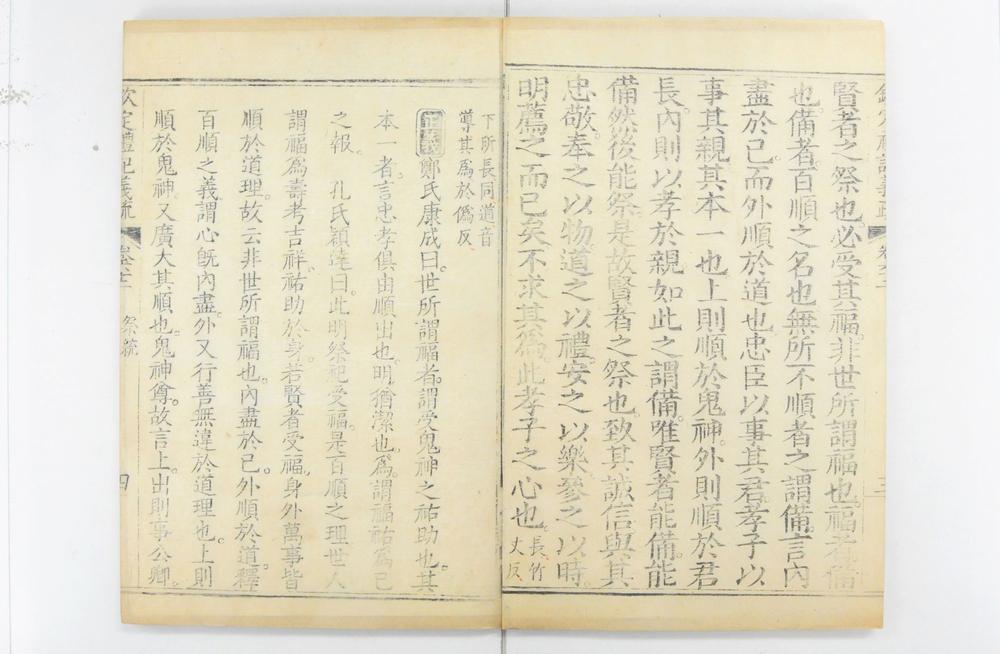 賢者之祭也。必受其福。非世所謂福也。福者備
也。備者。百順之名也。無所不順者之謂備。言內
盡於己。而外順於道也。忠臣以事其君。孝子以
事其親。其本一也。上則順於鬼神。外則順於君
長。內則以孝於親。如此之謂備。唯賢者能備。能
備然後能祭。是故賢者之祭也。致其誠信。與其
忠敬。奉之以物。道之以禮。安之以樂。參之以時。
明薦之而已矣。不求其為。此孝子之心也。長竹丈反
下所長同道音
導其為於偽反
正義鄭氏康成曰。世所謂福者。謂受鬼神之祐助也。其
本一者。言忠孝俱由順出也。明猶潔也。為。謂福祐為己
之報。 孔氏穎達曰。此明祭祀受福。是百順之理。世人
謂福為壽考吉祥。祐助於身。若賢者受福。身外萬事皆
順於道理。故云非世所謂福也。內盡於己。外順於道。釋
百順之義。謂心既內盡。外又行善。無違於道理也。上則
順於鬼神。又廣大其順也。鬼神尊。故言上。出則事公卿。
欽定禮記義疏 卷六十二 祭統 四